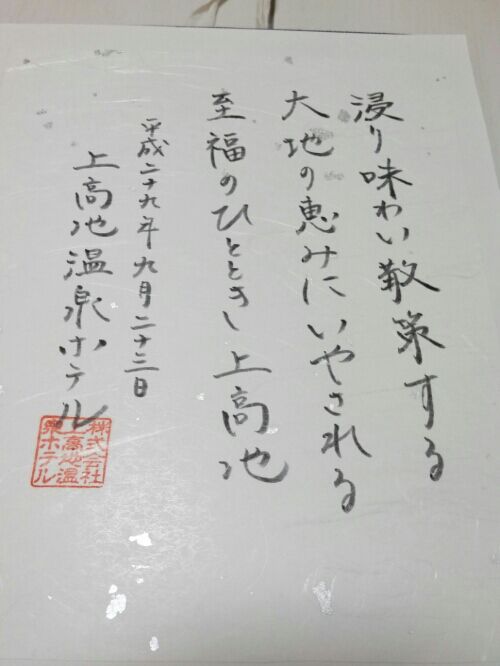 浸り味わい散策する
大地の恵みにいやされる
至福のひととき上高地
平成二十九年九月二十三日
上高地温泉ホテル
株式会社
上高地温
泉ホテル